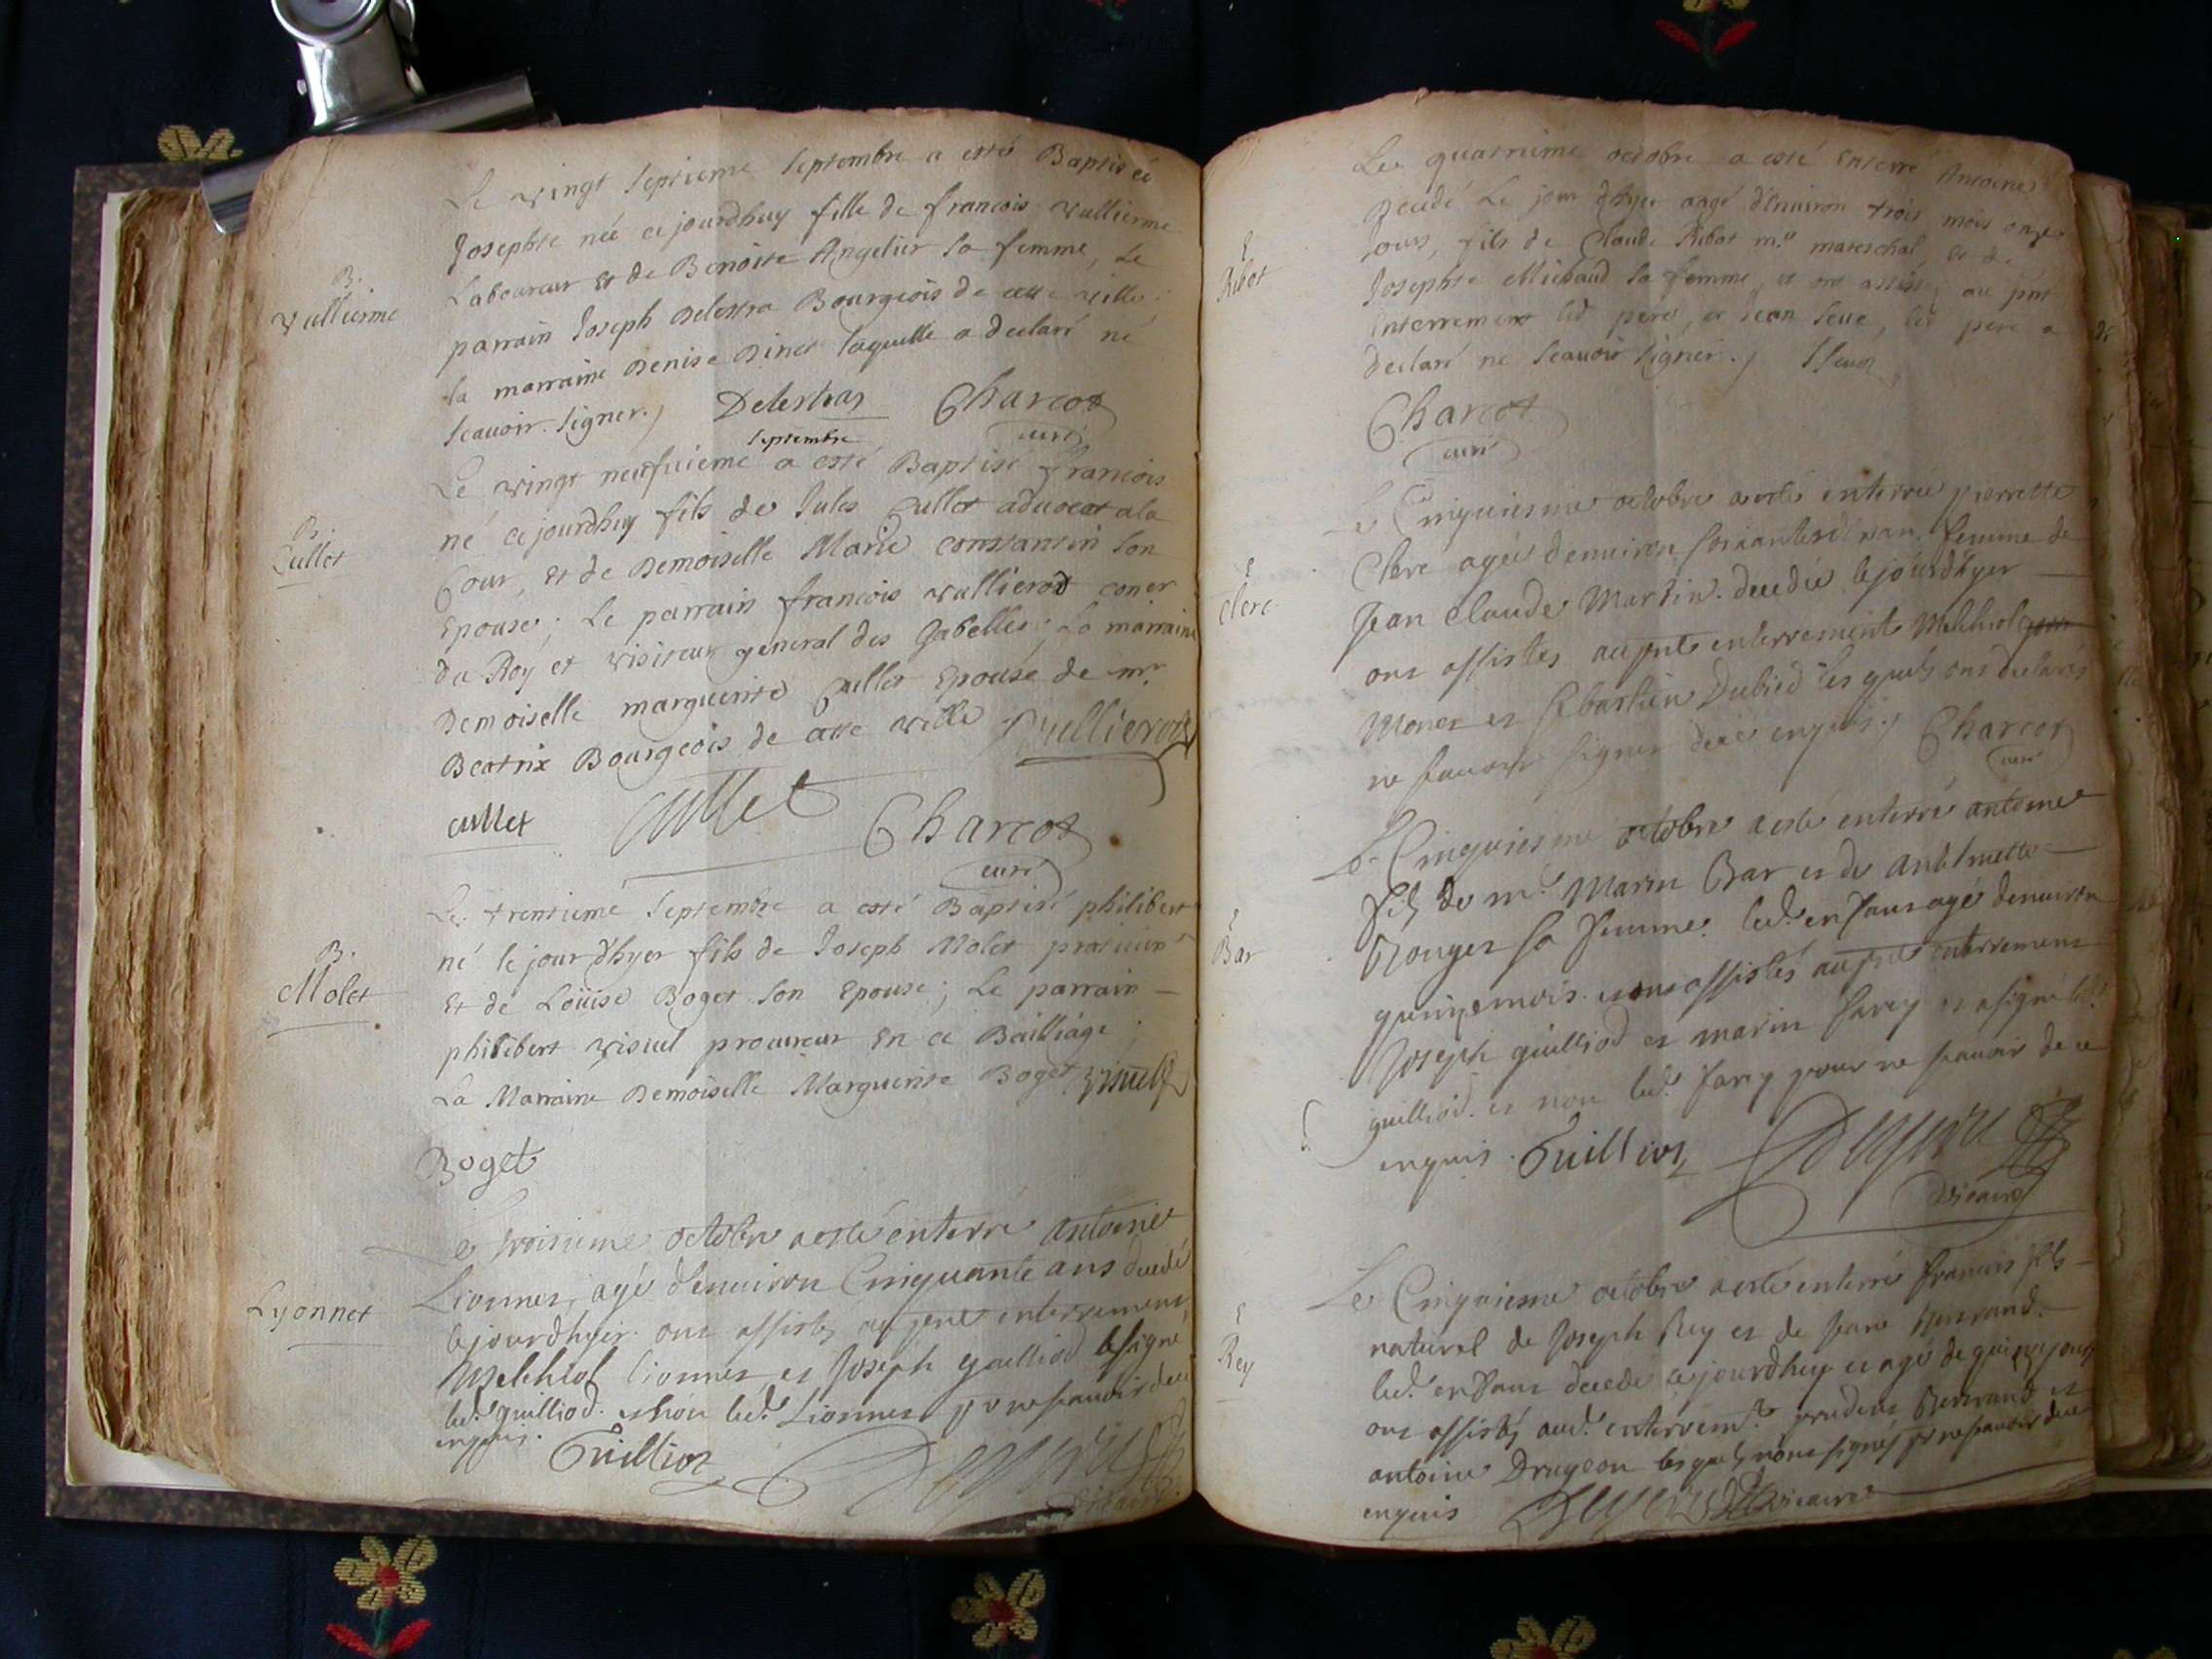 Le vingt septieme septembre a esté Baptisée
B.
vullierme
Josephte née cejourdhuy fille de francois vullierme
Laboureur et de Benoite Angelier sa femme, Le
parrain Joseph Delestra Bourgeois de cette ville;
la marraine Denise Dinet laquelle a declaré né
scavoir signer.
Delestras Charcot
curé
septembre
Le vingt neufuieme a esté Baptisé francois
B.
Cullet
né cejourdhuy fils de Jules Cullet aduocat ala
Cour, et de Demoiselle Marie constantin son
Epouse; Le parrain francois vullierod coner
du Roy et visiteur general des Gabelles; La marraine
Demoiselle marguerite Cullet Epouse de mr.
Beatrix Bourgeois de cette ville
Vullierod
cullet Cullet Charcot
curé
Le trentieme septembre a esté Baptisé philibert
B.
Molet
né le jour d'hyer fils de Joseph Molet praticien
Et de Loüise Boget son Epouse; Le parrain
philibert visiul procureur En ce Bailliage;
La Marraine Demoiselle Marguerite Boget
Boget
Le troisieme octobre a esté enterré antoine
Lyonnet
Lionnet, agé d'enuiron Cinquante ans decedé
lejourdhyer. ont assistés au pnt enterrement
Melchiol lionnet et Joseph guilliod a signé
led. guilliod. et non led. Lionnet pr ne sauoir de ce
enquis.
Guilliod
vicaire
Le quatrieme octobre a esté Enterré Antoine
Decedé Le jour d'hyer aagé d'Enuiron trois mois onze
E
Ribot
Jours, fils de Claude Ribot me. mareschal, et de
Josephte Michaud sa femme, et ont assisté au pnt
Enterrement led pere, et Jean seue, led pere a
declaré ne scauoir signer.
Charcot
curé
Le Cinquiesme octobre a esté enterrée pierrette
E
Clerc
Clerc agée denuiron soixante et un an, femme de
Jean Claude Martin. decedée lejourdhyer
ont assistés au pnt enterrement Melchiol
Monet et sebastien Dubied les quels ont declarés
ne sauoir signer de ce enquis.
Charcot
curé
Le Cinquiesme octobre a esté enterré antoine
E
Bar
fils de me. Marin Bar et de anthelmette
Rouget sa femme. led. enfant agé denuiron
quinze mois. et ont assistés au pnt enterrement
Joseph guilliod et marin farcy et a signé led.
guilliod. et non led. farcy pour ne sauoir de ce
enquis.
Guilliod
vicaire
Le Cinquiesme octobre a esté enterré francois fils
E
Rey
naturel de Joseph Rey et de Jeane Berrand.
led. enfant decedé cejourdhuy et agé de quinze jours
ont assistés aud. enterremt. prudent Berrand et
antoine Drugeon les quels nont signés pr ne sauoir de ce
enquis
vicaire